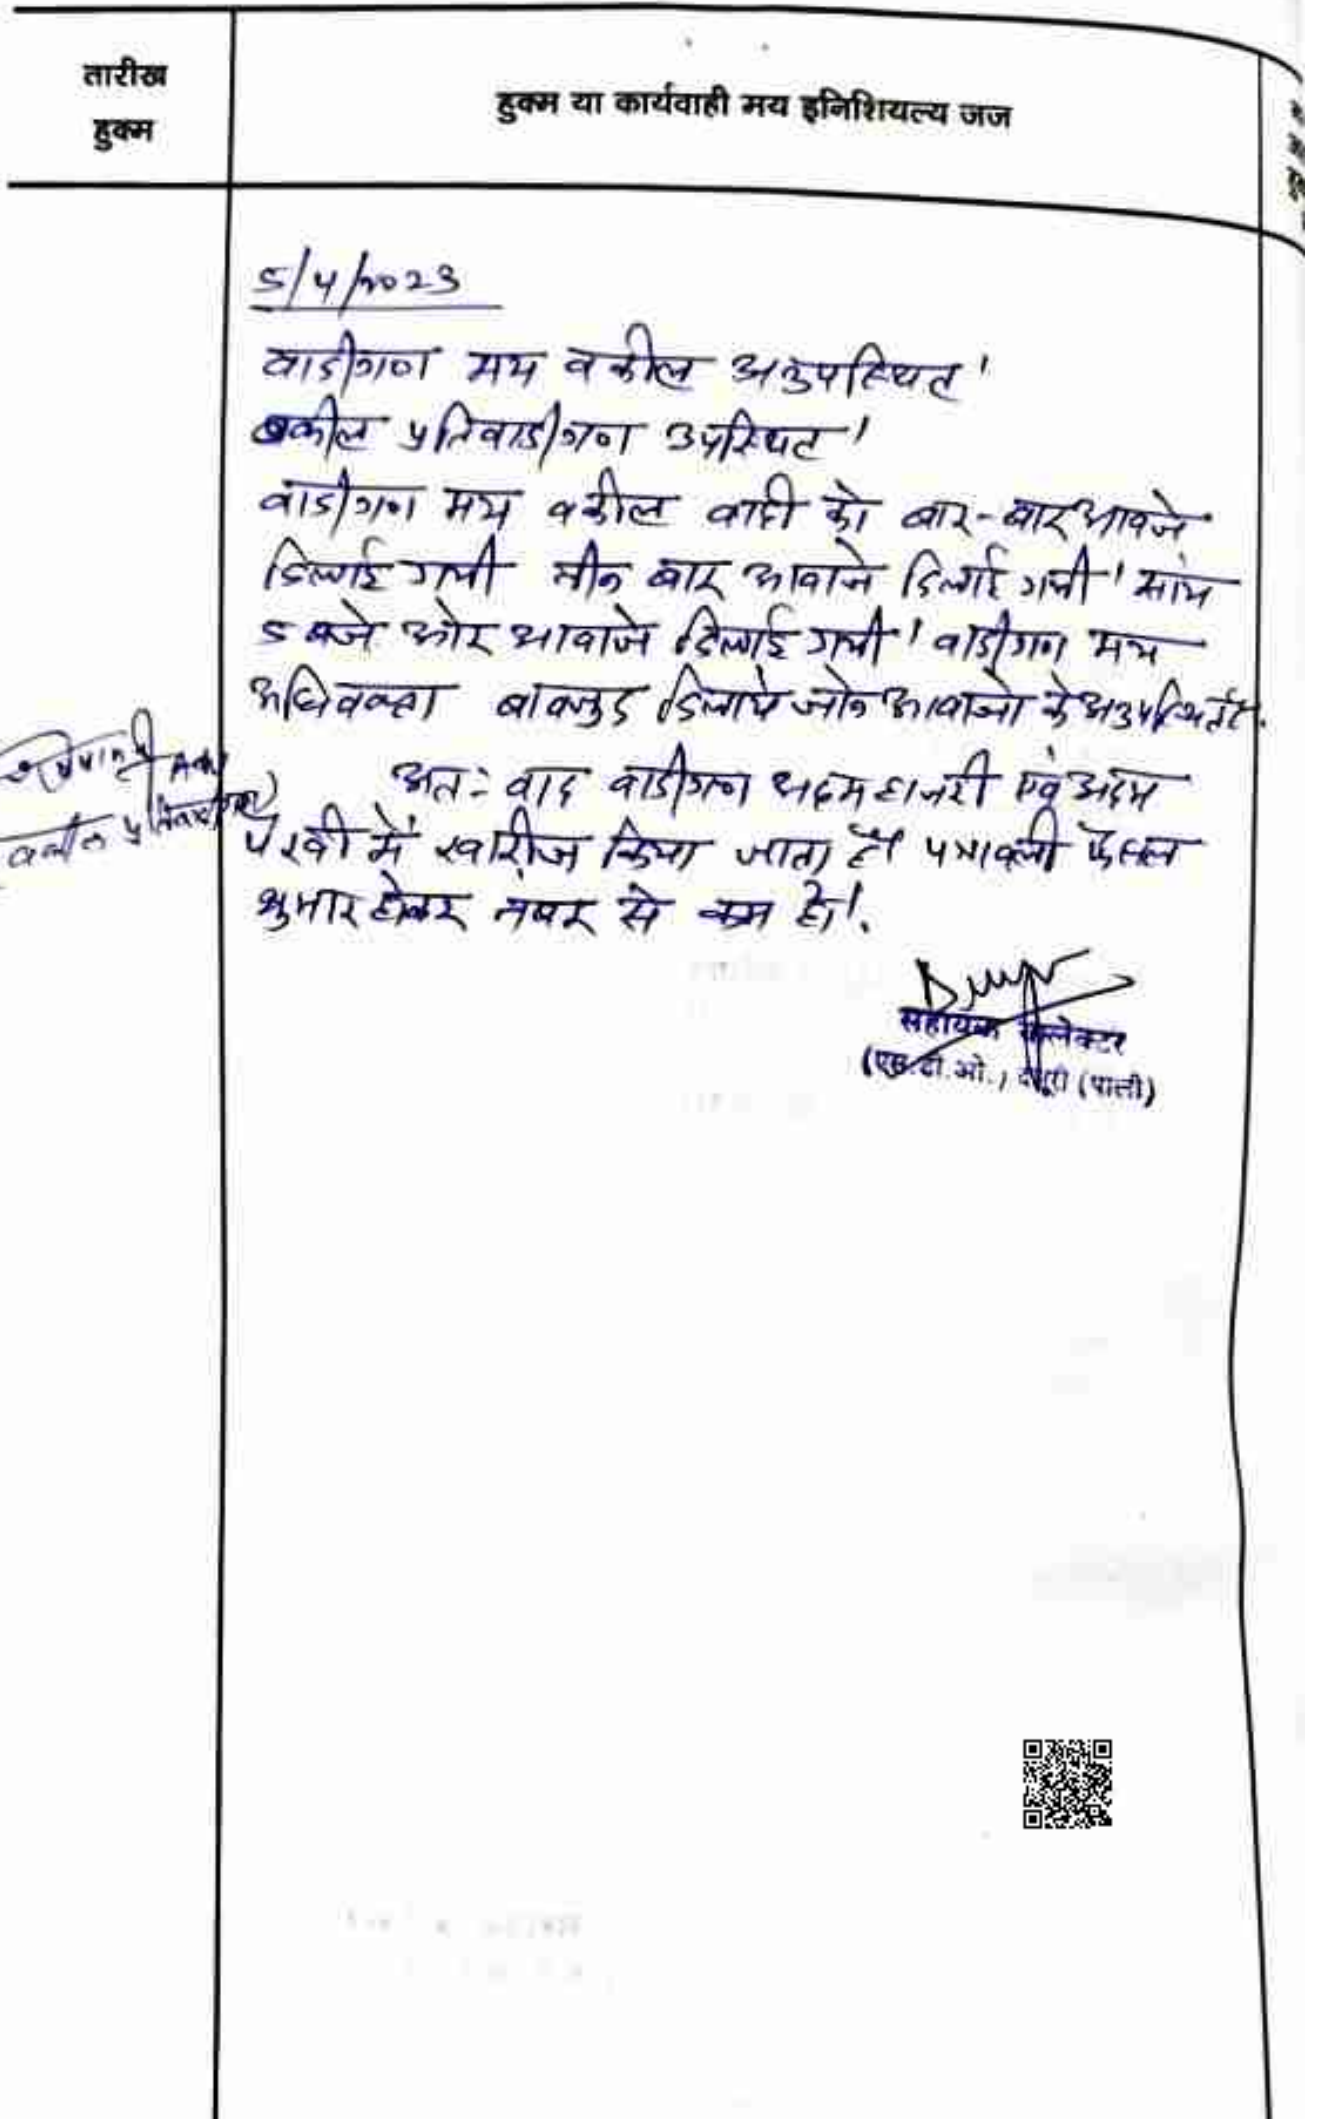 तारीख
हुक्म
हुक्म या कार्यवाही मय इनिशियल्य जज
5/4/2023
वादीगण मय वकील अनुपस्थित।
वकील प्रतिवादीगण उपस्थित।
वादीगण मय वकील वादी को बार-बार आवाजे
दिलाई गयी तीन बार आवाजे दिलाई गयी। सांय
5 बजे ओर आवाजे दिलाई गयी। वादीगण मय
अधिवक्ता बावजुद दिलाये जाने आवाजो के अनुपस्थित है.
अतः वाद वादीगण अदम हाजरी एवं अदम
पैरवी में खारीज किया जाता है। पत्रावली फैसल
शुमार होकर नंबर से कम हो।.
वकील प्रतिवादीगण
सहायक कलेक्टर
(एस.डी.ओ.) देसूरी (पाली)